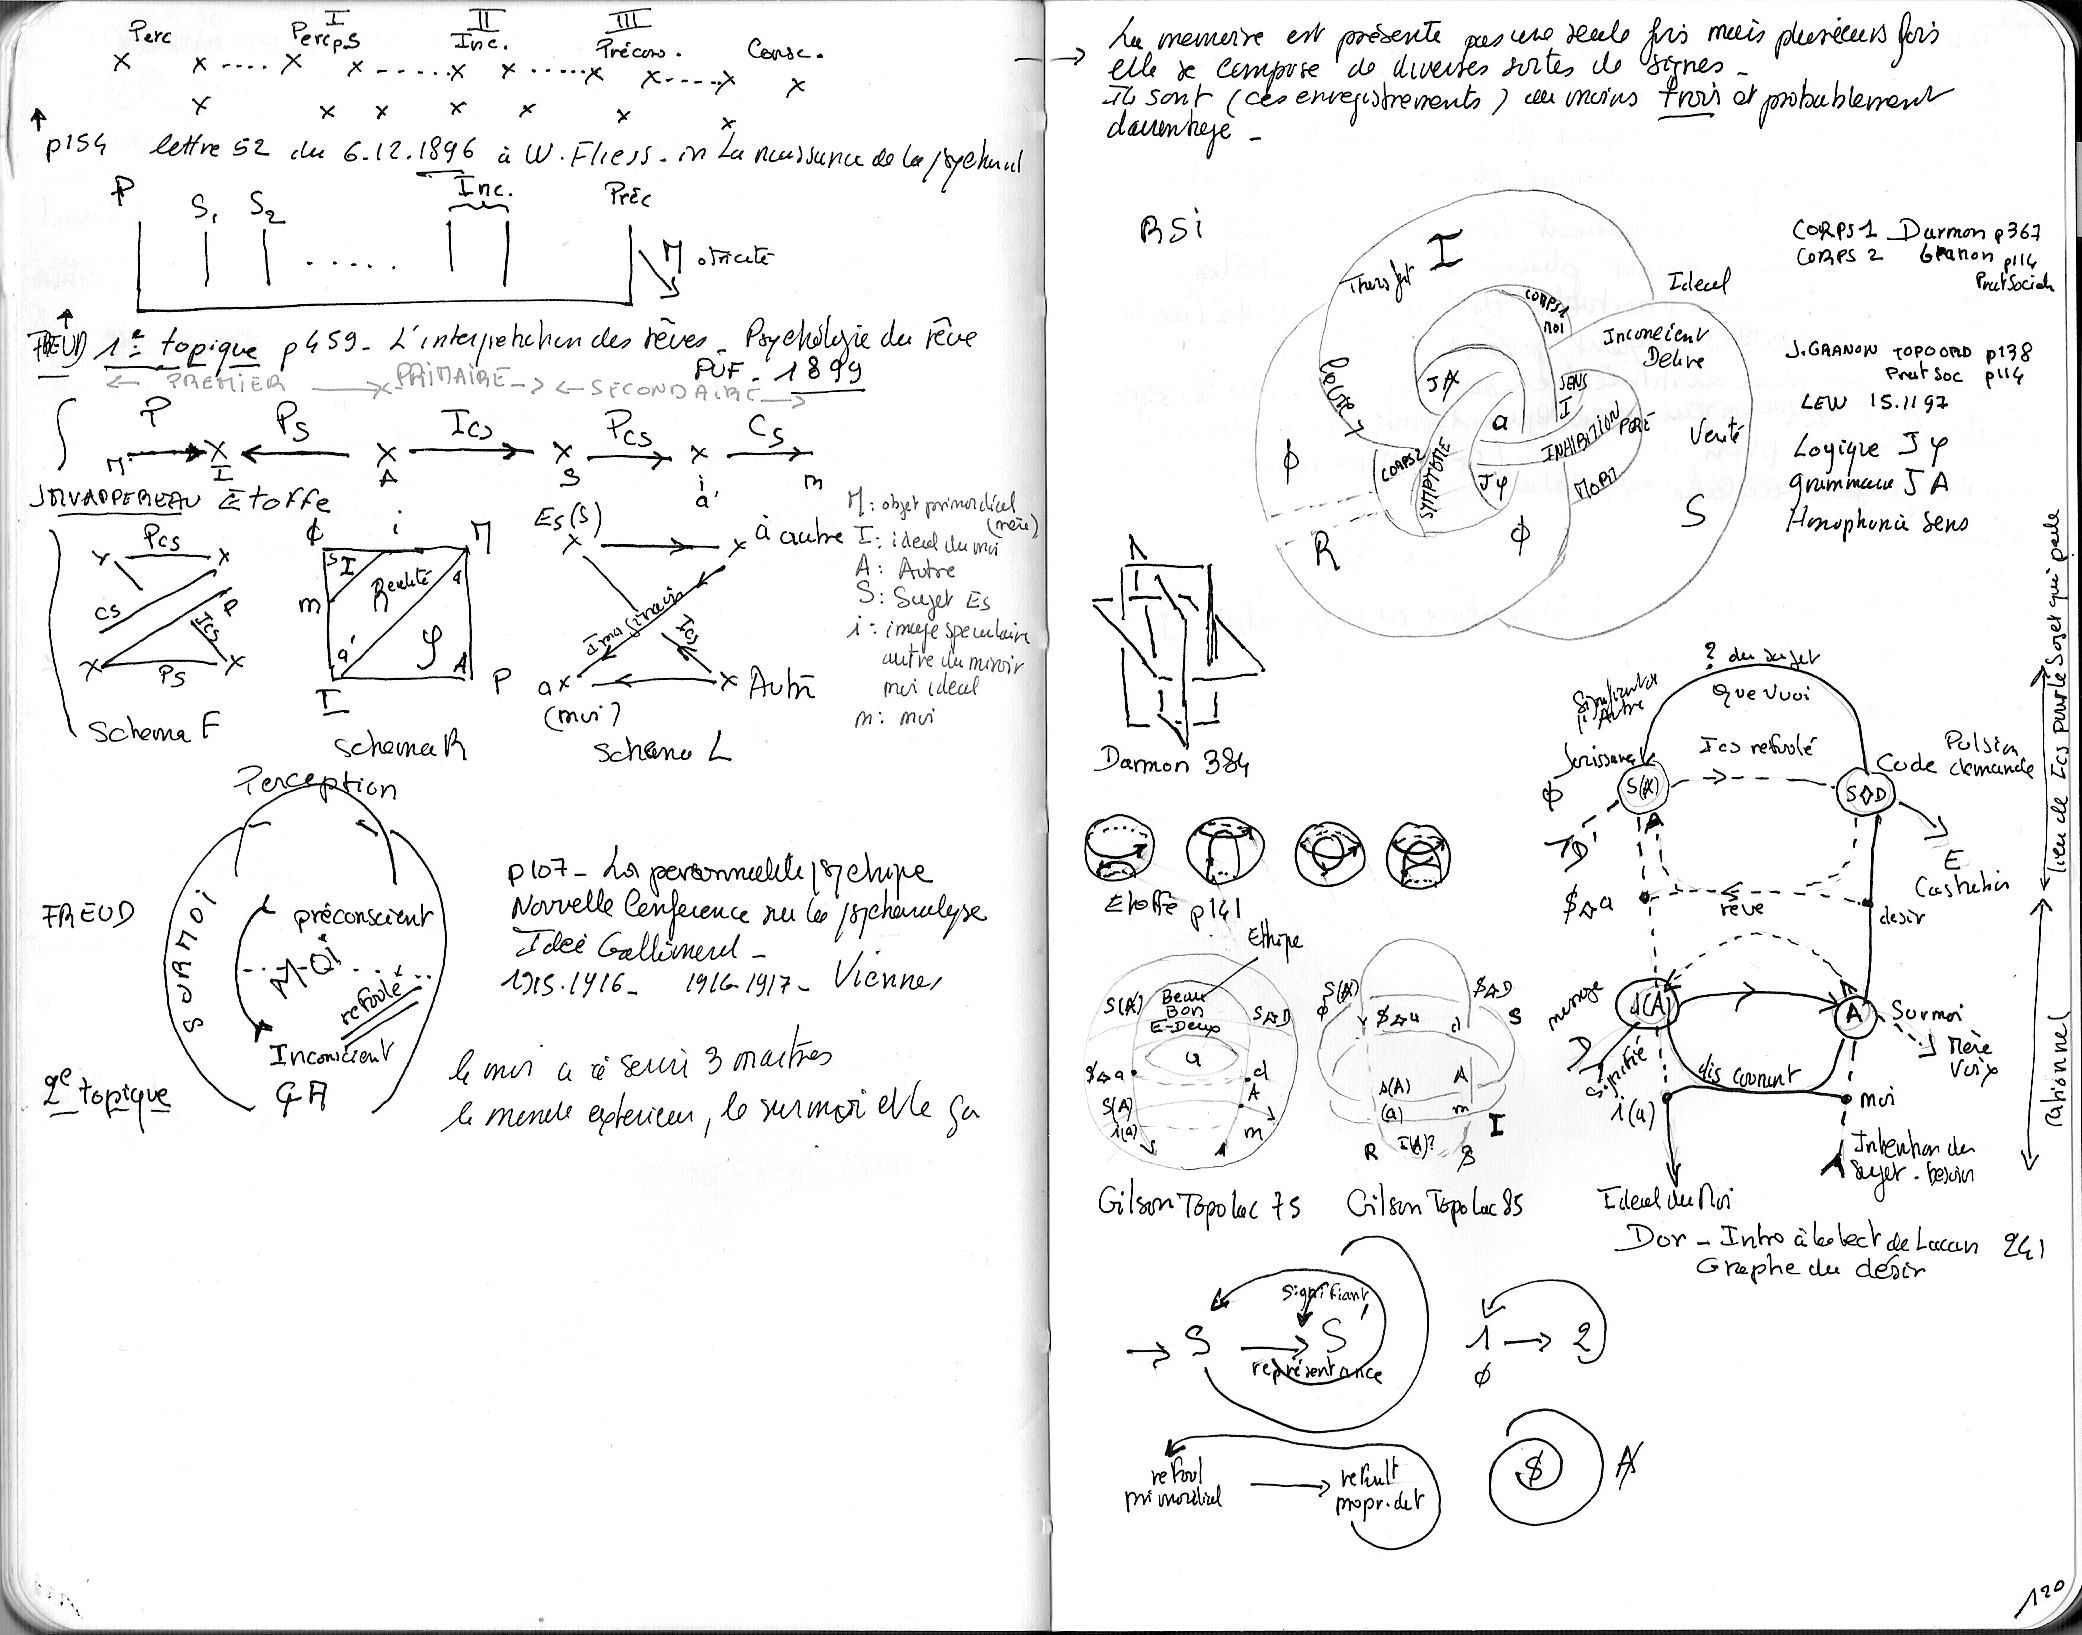 Perc
I
Perc.S
II
Inc.
III
Précons.
Consc.
p154 lettre 52 du 6.12.1896 à W. Fliess. in La naissance de la psychanal
P
S1
S2
Inc.
Préc
M otricité
FREUD 1e topique p459 - L'interprétation des rêves - Psychologie du rêve
PUF - 1899
PREMIER
PRIMAIRE
SECONDAIRE
P
Ps
Ics
Pcs
Cs
M
I
A
S
i
a'
m
JM VAPPEREAU Etoffe
Pcs
cs
P
Ics
Ps
Schema F
i
M
S
I
Realité
R
a
m
a'
φ
A
I
P
schema R
Es(S)
à autre
Imaginaire
Ics
a
(moi)
Autre
Schema L
M: objet primordial
(mère)
I: ideal du moi
A: Autre
S: Sujet Es
i: image speculaire
autre du miroir
moi ideal
m: moi
Perception
FREUD
SURMOI
préconscient
MOI
refoulé
Inconscient
2e topique
ÇA
p107 - La personnalité psychique
Nouvelle Conference sur la psychanalyse
Idée Gallimard -
1915.1916 - 1916-1917 - Viennes
le moi a à servir 3 maitres
le monde exterieur, le surmoi et le ça
La memoire est présente pas une seule fois mais plusieurs fois
elle se compose de diverses sortes de signes -
Ils sont (ces enregistrements) au moins trois et probablement
davantage -
RSI
I
Transfert
Ideal
CORPS 1
MOI
Inconscient
Delire
JA
SENS
I
a
INHIBITION
PÈRE
Verité
CORPS 2
SYMPTOME
Jφ
MORT
ϕ
ϕ
R
S
CORPS 1 Darmon p367
CORPS 2 Granon p114
Prat Sociale
J. GRANON TOPOORD p138
Prat Soc p114
LEW 15.11 97
Logique J φ
grammaire J A
Homophonie sens
Darmon 384
Etoffe p141
? du sujet
Que vuoi
Signifiant de
l'Autre
Jouissance
Ics refoulé
Code
Pulsion
demande
S(A)
S◊D
D'
$◊a
rêve
desir
E
Castration
message
s(A)
A
Surmoi
Mère
Voix
D
Signifié
discourant
i(a)
moi
Intention du
sujet. besoin
Ideal du Moi
lieu de Ics pour le Sujet qui parle
rationnel
Dor - Intro à la lect de Lacan 241
Graphe du désir
Ethique
S(A)
Beau
Bon
E-Deux
S◊D
a
$◊a
d
S(A)
A
i(a)
m
Gilson Topo Lac 75
S(A)
ϕ
$◊D
S
$◊a
d
s(A)
A
(a)
m
I
R
I(A)?
$
Gilson Topo Lac 85
signifiant
S
S'
représentance
1
2
ϕ
refoul
primordial
refoult
propr. dit
$
A
120